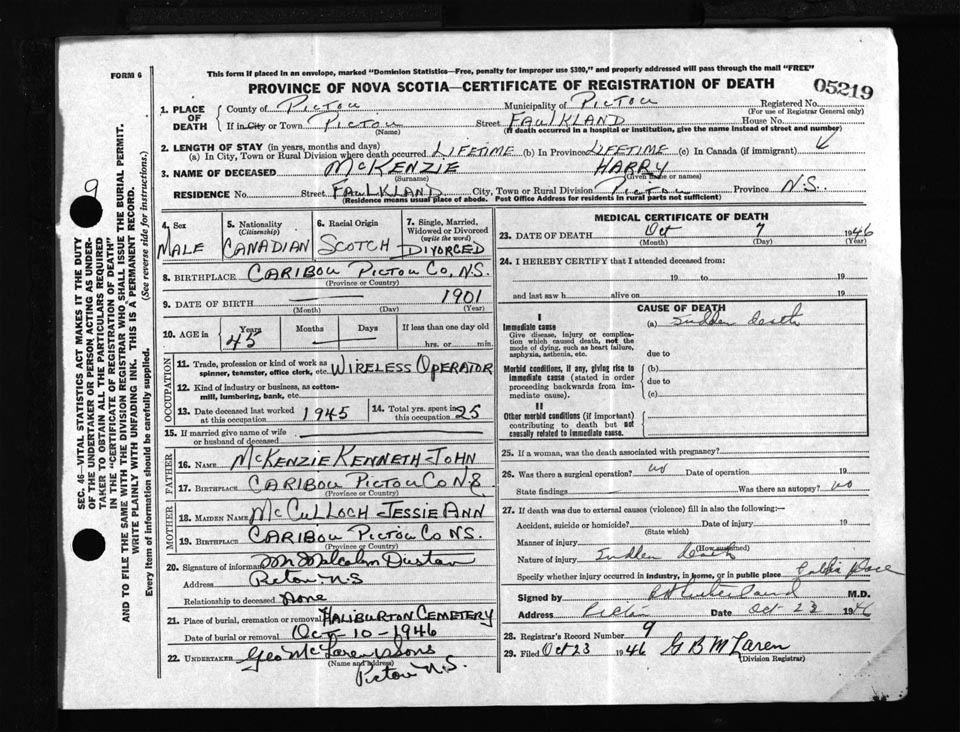 FORM 6
This form if placed in an envelope, marked "Dominion Statistics—Free, penalty for improper use $300," and properly addressed will pass through the mail "FREE"
PROVINCE OF NOVA SCOTIA—CERTIFICATE OF REGISTRATION OF DEATH
05219
1. PLACE OF DEATH County of PICTOU Municipality of PICTOU Registered No.
(For use of Registrar General only)
If in City or Town PICTOU Street FAULKLAND House No.
(Name) (If death occurred in a hospital or institution, give the name instead of street and number)
2. LENGTH OF STAY (in years, months and days)
(a) In City, Town or Rural Division where death occurred LIFETIME (b) In Province LIFETIME (c) In Canada (if immigrant)
3. NAME OF DECEASED MCKENZIE HARRY
(Surname) (Given name or names)
RESIDENCE No. Street FAULKLAND City, Town or Rural Division PICTOU Province N.S.
(Residence means usual place of abode. Post Office Address for residents in rural parts not sufficient)
4. Sex MALE
5. Nationality (Citizenship) CANADIAN
6. Racial Origin SCOTCH
7. Single, Married, Widowed or Divorced (write the word) DIVORCED
8. BIRTHPLACE CARIBOU PICTOU CO, N.S.
(Province or Country)
9. DATE OF BIRTH 1901
(Month) (Day) (Year)
10. AGE in Years 45 Months Days If less than one day old hrs. or min.
OCCUPATION
11. Trade, profession or kind of work as spinner, teamster, office clerk, etc. WIRELESS OPERATOR
12. Kind of industry or business, as cotton-mill, lumbering, bank, etc.
13. Date deceased last worked at this occupation 1945
14. Total yrs. spent in this occupation 25
15. If married give name of wife or husband of deceased
FATHER
16. NAME MCKENZIE KENNETH JOHN
17. BIRTHPLACE CARIBOU PICTOU CO N.S
(Province or Country)
MOTHER
18. MAIDEN NAME MCCULLOCH JESSIE ANN
19. BIRTHPLACE CARIBOU PICTOU CO NS.
(Province or Country)
20. Signature of informant Malcolm
Address Pictou N.S
Relationship to deceased None
21. Place of burial, cremation or removal HALIBURTON CEMETERY
Date of burial or removal OCT-10-1946
22. UNDERTAKER Geo McLaren & Sons
(Name and address)
Pictou N.S.
MEDICAL CERTIFICATE OF DEATH
23. DATE OF DEATH Oct 7 1946
(Month) (Day) (Year)
24. I HEREBY CERTIFY that I attended deceased from:
19 to 19
and last saw h alive on 19
CAUSE OF DEATH
I
Immediate cause (a) Sudden death
Give disease, injury or complication which caused death, not the mode of dying, such as heart failure, asphyxia, asthenia, etc.
due to
Morbid conditions, if any, giving rise to immediate cause (stated in order proceeding backwards from immediate cause).
(b)
due to
(c)
II
Other morbid conditions (if important) contributing to death but not causally related to immediate cause.
25. If a woman, was the death associated with pregnancy?
26. Was there a surgical operation? no Date of operation 19
State findings Was there an autopsy? no
27. If death was due to external causes (violence) fill in also the following:—
Accident, suicide or homicide? Date of injury 19
(State which)
Manner of injury
(How sustained)
Nature of injury Sudden death
Specify whether injury occurred in industry, in home, or in public place Public place
Signed by M.D.
Address Pictou Date Oct 23 1946
28. Registrar's Record Number 9
29. Filed Oct 23 1946 G B McLaren
(Division Registrar)
9
SEC. 46—VITAL STATISTICS ACT MAKES IT THE DUTY
OF THE UNDERTAKER OR PERSON ACTING AS UNDER-
TAKER TO OBTAIN ALL THE PARTICULARS REQUIRED
IN THE "CERTIFICATE OF REGISTRATION OF DEATH"
AND TO FILE THE SAME WITH THE DIVISION REGISTRAR WHO SHALL ISSUE THE BURIAL PERMIT.
WRITE PLAINLY WITH UNFADING INK. THIS IS A PERMANENT RECORD.
Every item of information should be carefully supplied. (See reverse side for instructions.)